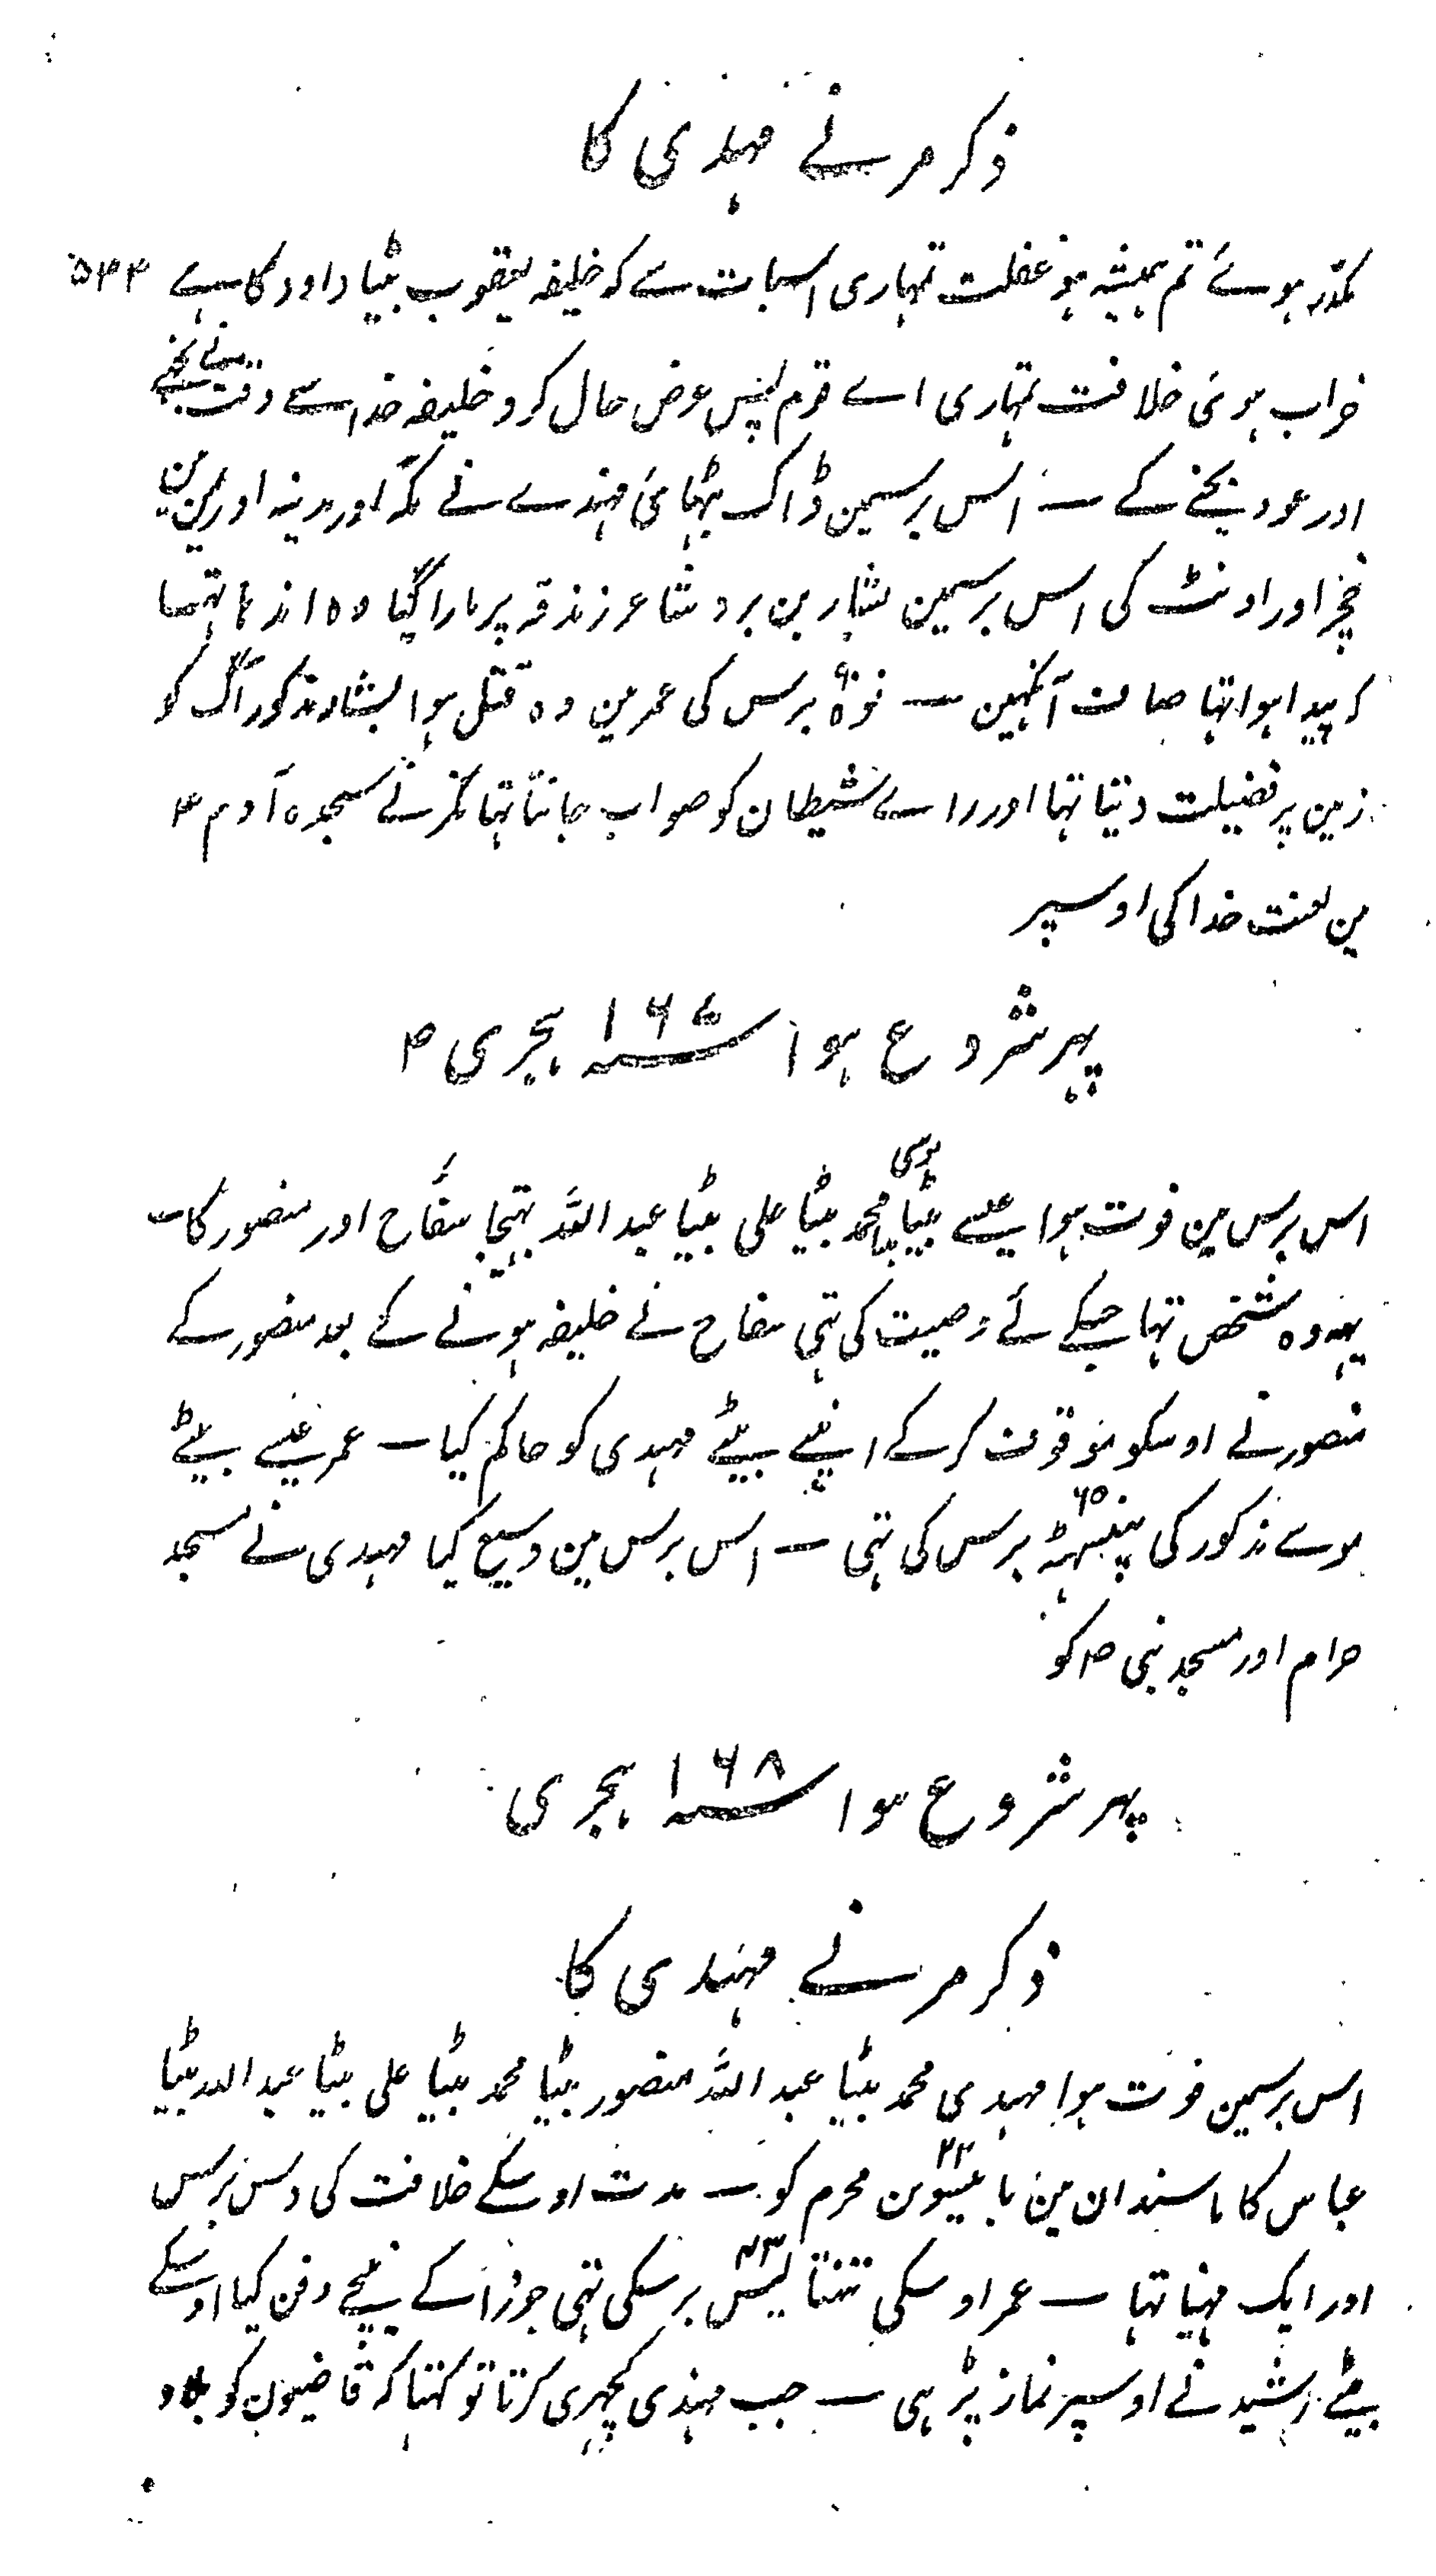 ذکر مرنے مہدی کا
مکدّر ہوئے تم ہمیشہ ہو غفلت تمہاری اسبات سے کہ خلیفہ یعقوب بیٹا داود کا ہے ۵۴۴
خراب ہوئی خلافت تمہاری اے قوم پس عرض حال کرو خلیفہ خدا سے وقت بجنے نے
اور عود بجنے کے ـــ اس برسمین ڈاک بٹہائی مہدے نے مکّہ اور مدینہ اور یمن مین
خچر اور اونٹ کی اس برسمین بشار بن برد شاعر زندقہ پر مارا گیا وہ اندہا تہا
کہ پیدا ہوا تہا صاف آنکہین ـــ نوّہ ۹۰ برس کی عمر مین وہ قتل ہوا بشار مذکور آگ کو
زمین پر فضیلت دیتا تہا اور رائے شیطان کو صواب جانتا تہا نکرنے سجدہ آدم ۴
مین لعنت خدا کی اوسپر
پہر شروع ہوا سنہ ۱۶۷ ہجری م
اس برس مین فوت ہوا عیسے بیٹا موسی بیٹا محمد بیٹا علی بیٹا عبد اللہ بہتیجا سفّاح اور منصور کا ـــ
یہہ وہ شخص تہا جسکے لئے وصیت کی تہی سفاح نے خلیفہ ہونے کے بعد منصور کے
منصور نے اوسکو موقوف کر کے اپنے بیٹے مہدی کو حاکم کیا ـــ عمر عیسے بیٹے
موسے مذکور کی پینسہٹہ ۶۵ برس کی تہی ـــ اس برس مین وسیع کیا مہدی نے مسجد
حرام اور مسجد نبی ص کو
پہر شروع ہوا سنہ ۱۶۸ ہجری
ذکر مرنے مہدی کا
اس برسمین فوت ہوا مہدی محمد بیٹا عبد اللہ منصور بیٹا محمد بیٹا علی بیٹا عبد اللہ بیٹا
عباس کا ماسبندان مین بائیسوین ۲۲ محرم کو ـــ مدت اوسکے خلافت کی دس برس
اور ایک مہنیا تہا ـــ عمر اوسکی تینتالیس ۴۳ برسکی تہی جوزا کے نیچے دفن کیا اوسکے
بیٹے رشید نے اوسپر نماز پڑہی ـــ جب مہدی کچہری کرتا تو کہتا کہ قاضیون کو بلاو